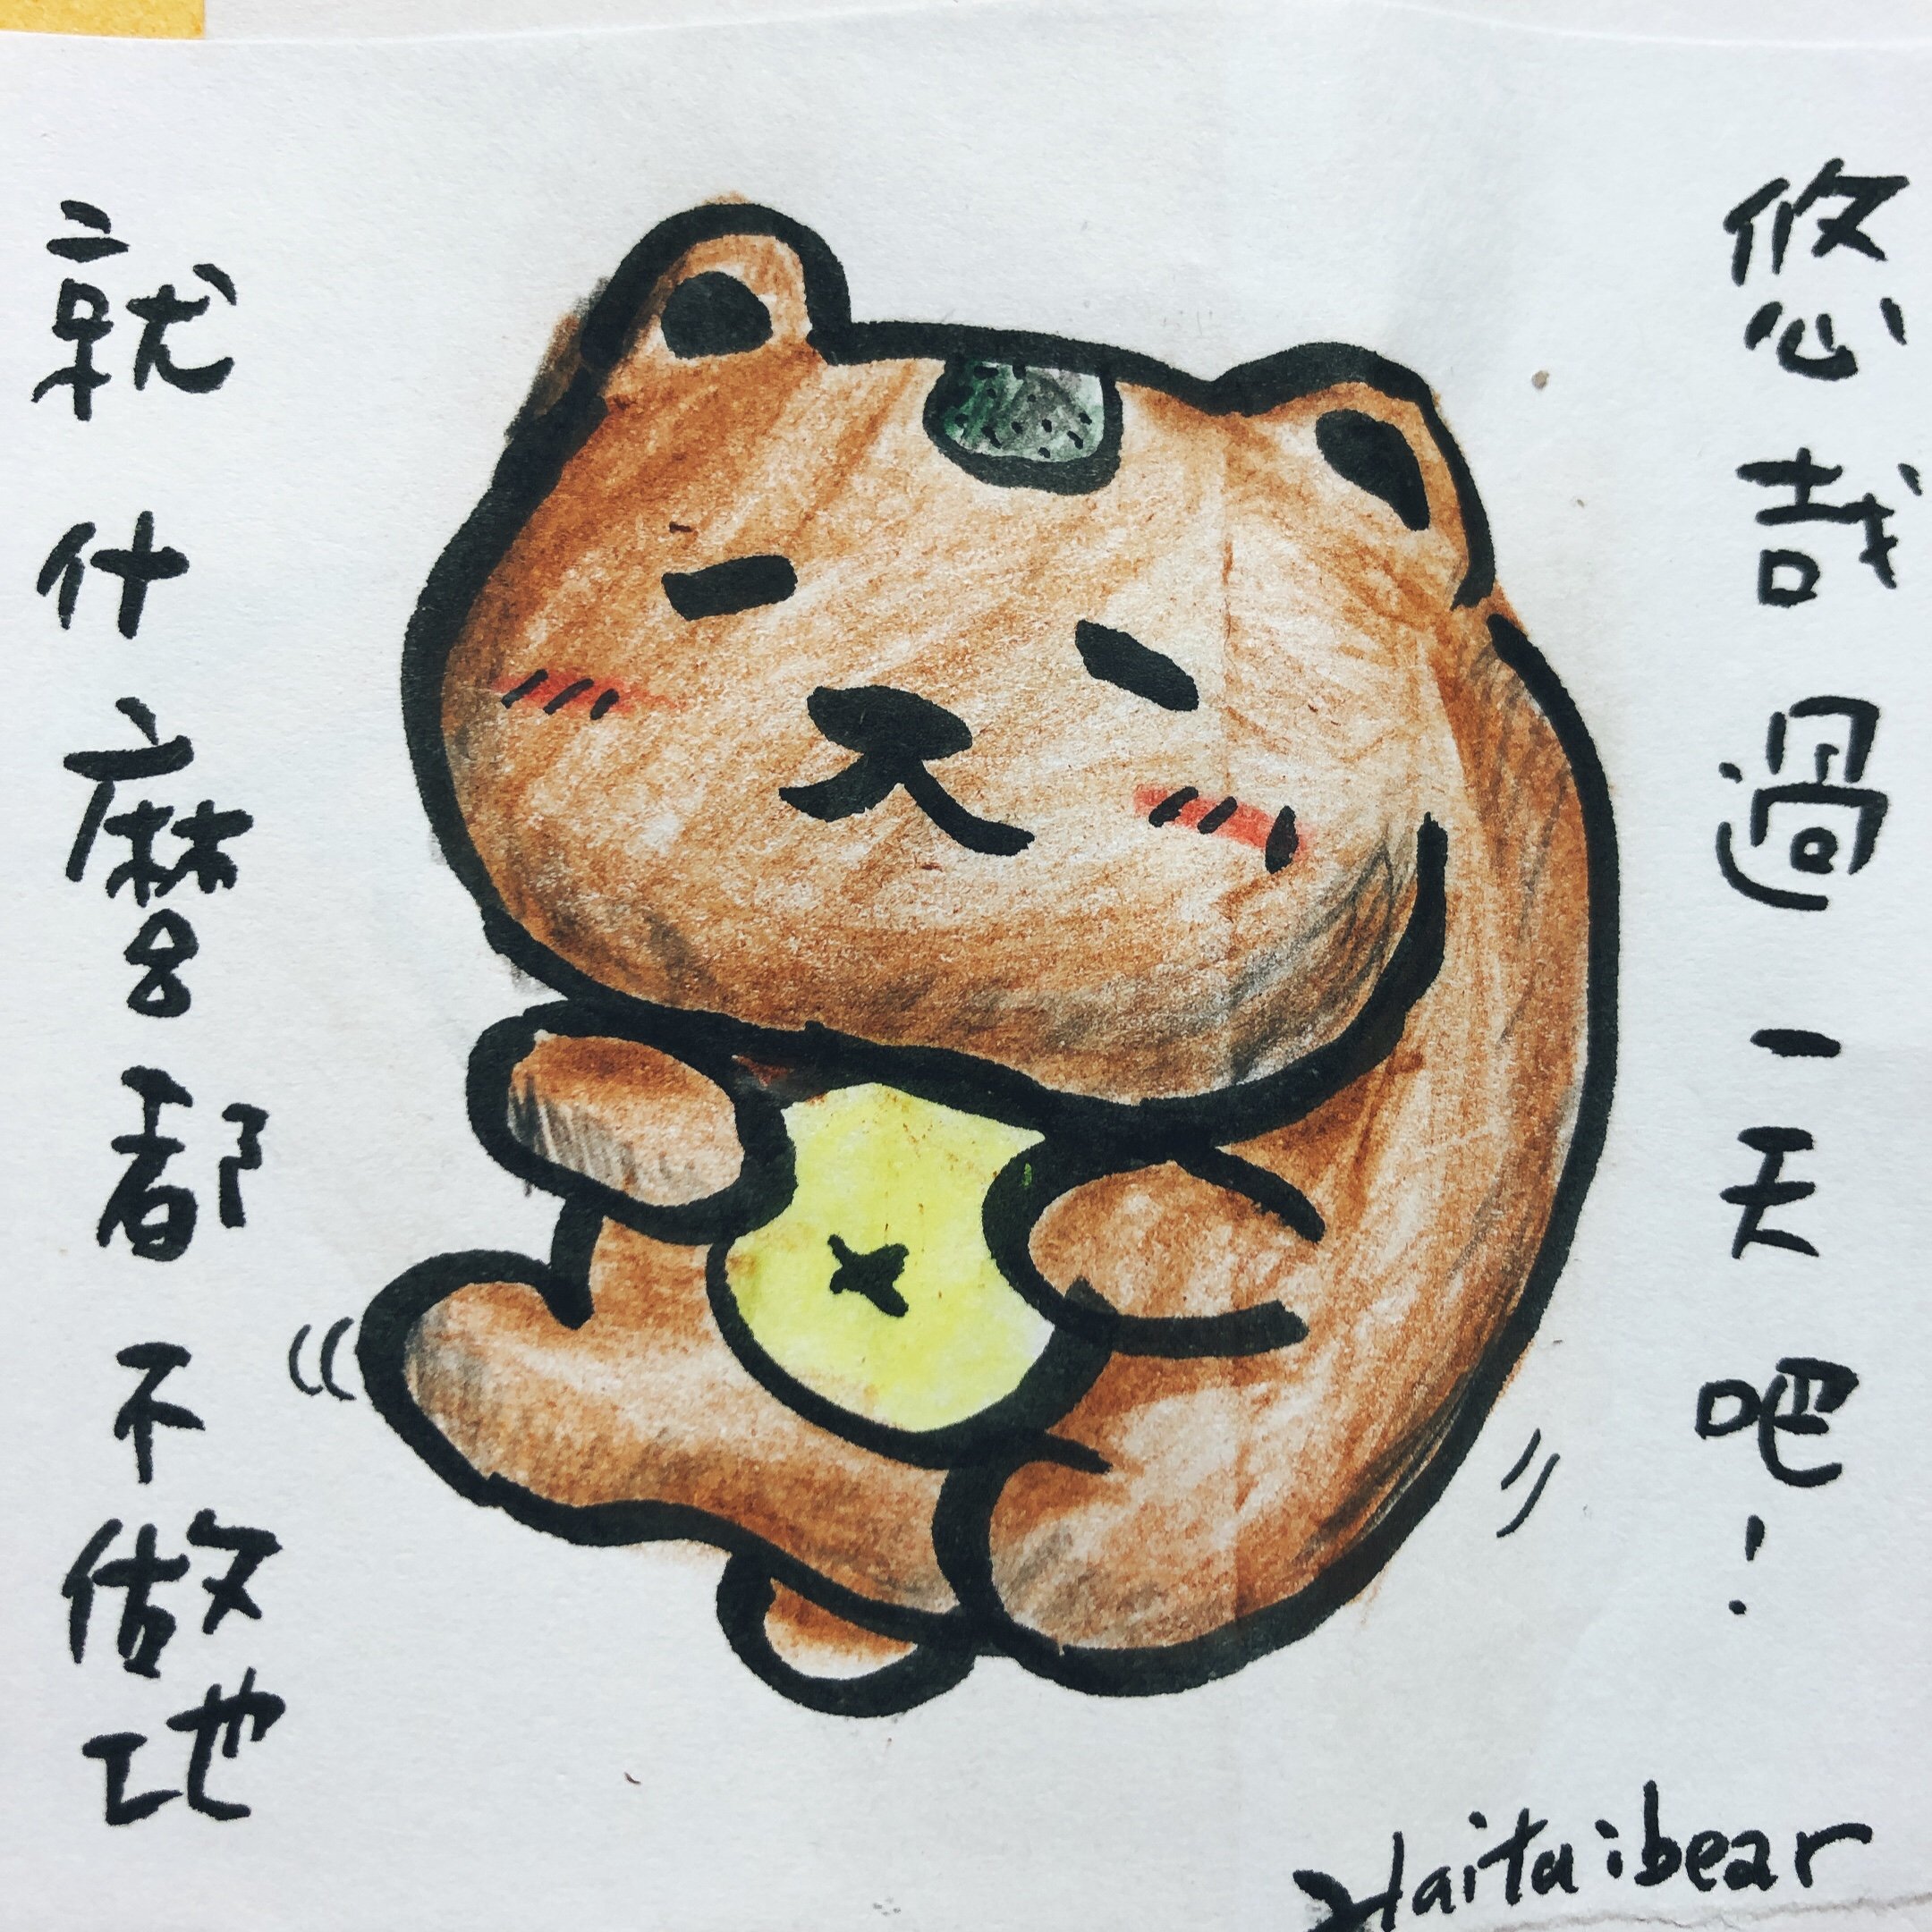 就什麼都不做地
悠哉過一天吧!
Haitaibear